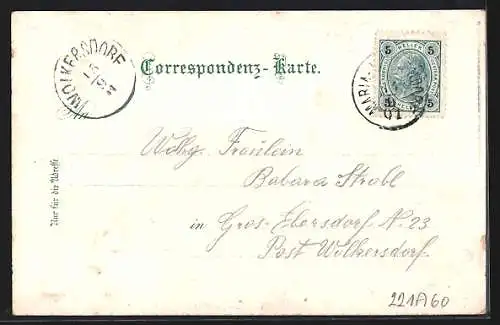 WOLKERSDORF
Correspondenz-Karte.
5 HELLER 5
5 5
MARIA
01
Nur für die Adresse
Fräulein
Babara Strobl
in Gros-Ebersdorf N. 23
Post Wolkersdorf.
221A60